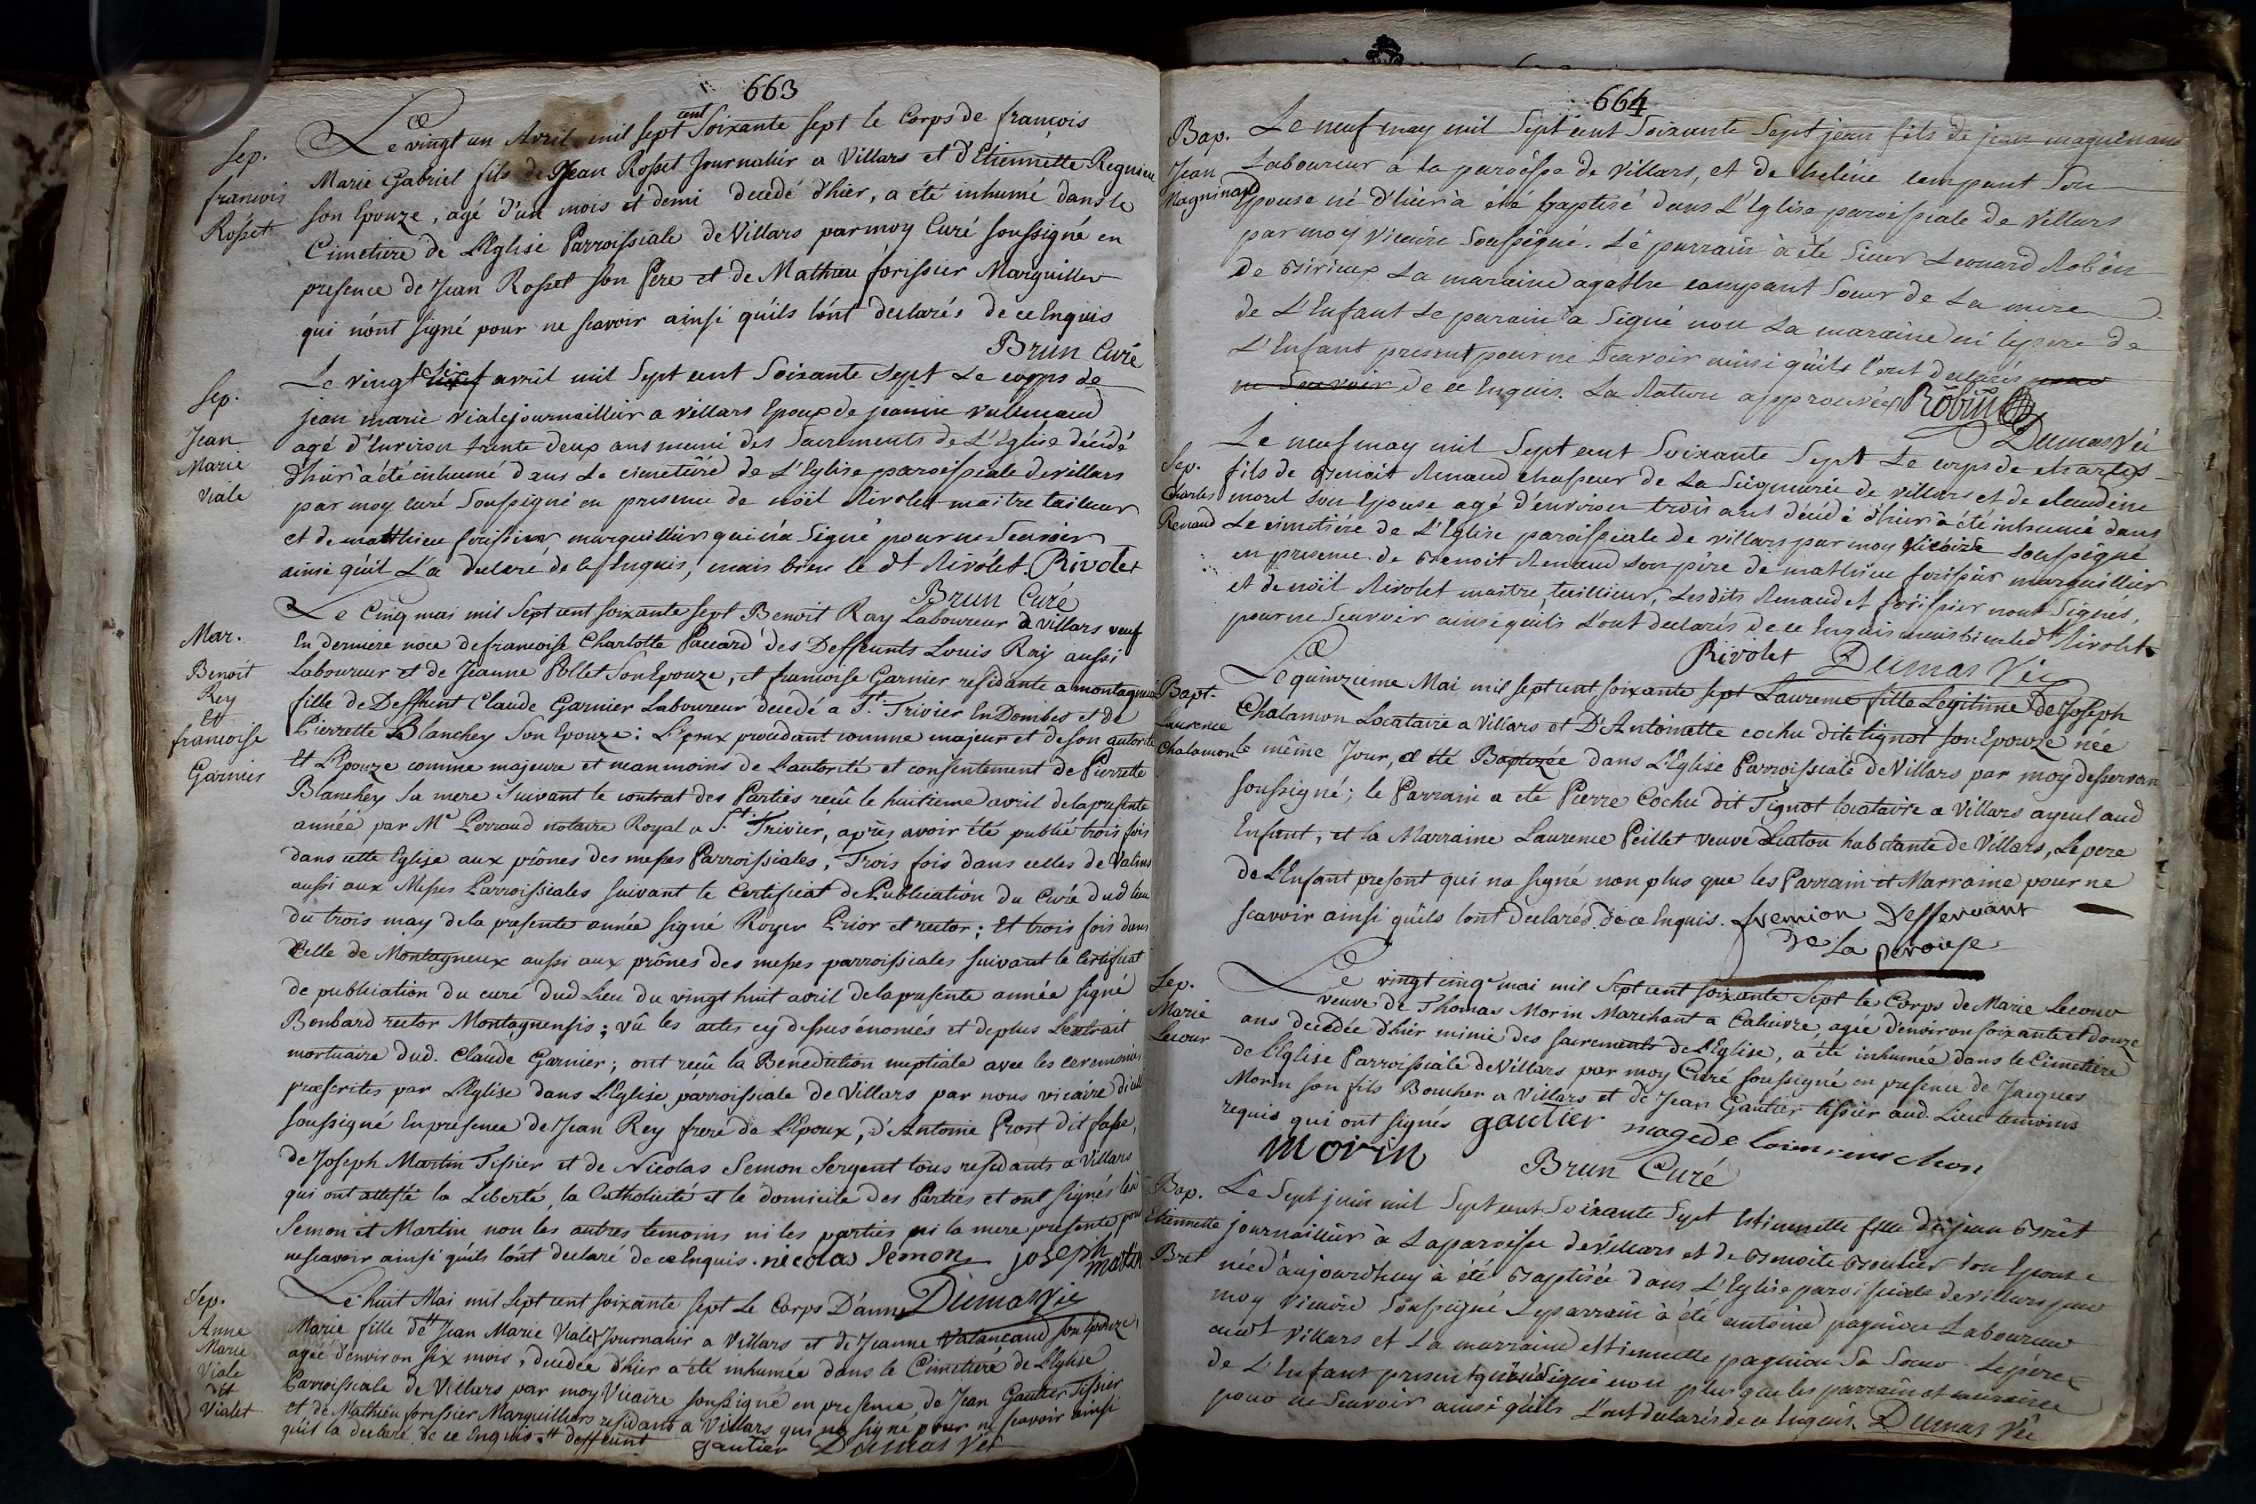 663
Sep.
françois
Rosset
Le vingt un Avril mil sept cent Soixante sept le Corps de françois
Marie Gabriel fils de Jean Rosset Journalier a Villars et d'Etiennette Reguieu
son Epouze, agé d'un mois et demi decedé d'hier, a été inhumé dans le
Cimetiere de L'Eglise Parroissiale de Villars par moy Curé soussigné en
presence de Jean Rosset son Pere et de Mathieu forissier Marguiller
qui n'ont signé pour ne scavoir ainsi qu'ils l'ont declarés de ce Enquis
Brun Curé
Sep.
Jean
Marie
Viale
Le vingt six avril mil Sept cent Soixante Sept Le corps de
jean marie viale journaillier a villars Epoux de jeanne vallencaud
agé d'Environ trente deux ans muni des Sacrements de L'Eglise décédé
d'hier a été inhumé dans Le cimetiére de L'Eglise paroissiale de villars
par moy curé Soussigné en presence de noël Rivolet maitre tailleur
et de matthieu forissier marguillier qui n'a Signé pour ne Scavoir
ainsi qu'il L'a declaré de ce Enquis, mais bien le dt Rivólet. Rivolet
Brun Curé
Mar.
Benoit
Rey
Et
francoise
Garnier
Le Cinq mai mil Sept cent soixante sept Benoit Ray Laboureur a villars veuf
En derniere noce de francoise Charlotte Paccard des Deffeunts Louis Ray aussi
Laboureur et de Jeanne Pollet Son Epouze, et francoise Garnier residante a montagneux
fille de Deffeunt Claude Garnier Laboureur decedé a St. Trivier En Dombes et de
Pierrette Blanchey Son Epouze: L'Epoux procedant comme majeur et de son autorité
Et L'Epouze comme majeure et neanmoins de L'autorité et consentement de Pierrette
Blanchey Sa mere suivant le contrat des Parties reçû le huitieme avril de la presente
année par Me Perraud notaire Royal a St. Trivier, après avoir été publié trois fois
dans cette Eglise aux prônes des messes Parroissiales, Trois fois dans celles de Valins
aussi aux Messes Parroissiales suivant le Certificat de Publication du Curé dud lieu
du trois may de la presente année signé Royer Prior et rector; Et trois fois dans
Celle de Montagneux aussi aux prônes des messes parroissiales suivant le Certificat
de publication du curé dud Lieu du vingt huit avril de la presente année signé
Bonbard rector Montagnensis; vû les actes cy dessus énoncés et de plus L'extrait
mortuaire dud. Claude Garnier; ont reçû la Benediction nuptiale avec les ceremonies
præscrites par L'Eglise dans L'Eglise parroissiale de Villars par nous vicaire d'icelle
soussigné En présence de Jean Rey frere de L'Epoux, d'Antoine Prost dit fasse,
de Joseph Martin Tissier et de Nicolas Semon Sergent tous residants a Villars
qui ont attesté la Liberté, la Catholicité et le domicile des Parties et ont signés lesd
Semon et Martin non les autres temoins ni les parties ni la mere presente pour
ne scavoir ainsi qu'ils l'ont declaré de ce Enquis. nicolas Semon joseph martin
Dumas Vic
Sep.
Anne
Marie
Viale
dt
Vialet
Le huit Mai mil Sept cent soixante sept Le Corps D'anne
Marie fille de Jean Marie Viale Journalier a Villars et de Jeanne Valancaud son Epouze
agée d'environ six mois, decedée d'hier a été inhumée dans le Cimetiere de L'Eglise
Parroissiale de Villars par moy Vicaire soussigné en presence de Jean Gautier Tissier
et de Mathieu forissier Marguilliers residant a Villars qui na signé pour ne scavoir ainsi
qu'il la declaré de ce Enquis. deffeunt gautier Dumas Vic
664
Bap.
Jean
Magninand
Le neuf may mil Sept cent Soixante Sept jean fils de jean magninand
Laboureur a La paroisse de villars, et de heléne campant Son
Epouse né d'hier à été baptisé dans L'Eglise paroissiale de villars
par moy vicaire Soussigné. Le parrain à été Sieur Leonard Robin
de Birieux La maraine agathe campant Soeur de La mere
de L'Enfant Le parain a Signé non La maraine ni Le pere de
L'Enfant present pour ne Scavoir ainsi qu'ils l'ont declarés pour
ne Scavoir de ce Enquis. La Rature approuvée Robin
Dumas Vic
Sep.
Charles
Renaud
Le neuf may mil Sept cent Soixante Sept Le corps de charles
fils de Benoit Renaud chasseur de La Seigneurie de villars et de claudine
morel son Epouse agé d'environ trois ans décédé d'hier à été inhumé dans
Le cimetiére de L'Eglise paroissiale de villars par moy vicaire soussigné
en presence de Benoit Renaud son pére de mathieu forissier marguillier
et de noël Rivolet maitre tailleur, Lesdits Renaud et forissier n'ont Signés,
pour ne Scavoir ainsi qu'ils L'ont declarés de ce Enquis mais bien led Rivolet
Rivolet Dumas Vic
Bapt.
Laurence
Chalamon
Le quinzieme Mai mil sept cent soixante sept Laurence fille Legitime de Joseph
Chalamon Locataire a Villars et D'Antoinette cochu dite tignot son Epouze née
le même Jour, a été Baptizée dans L'Eglise Parroissiale de Villars par moy desservan
soussigné; le Parrain a été Pierre Cochu dit Tignot locataire a Villars ayeul aud
Enfant, et la Marraine Laurence Peillet veuve Liaton habitante de Villars, Le pere
de L'Enfant present qui na signé non plus que les Parrain et Marraine pour ne
scavoir ainsi qu'ils lont declarés de ce Enquis. Desservant
de La perouse
Sep.
Marie
Lecour
Le vingt cinq mai mil Sept cent soixante Sept le Corps de Marie Lecour
veuve de Thomas Morin Marchant a Caluire, agée d'environ soixante et douze
ans decedée d'hier munie des sacrements de L'Eglise, a été inhumée dans le Cimetiere
de L'Eglise Parroissiale de Villars par moy Curé soussigné en presence de Jacques
Morin son fils Boucher a Villars et de Jean Gautier tissier aud. Lieu temoins
requis qui ont signés gautier
morin Brun Curé
Bap.
Etiennette
Bret
Le Sept juin mil Sept cent Soixante Sept Estiennette fille de jean Bret
journaillier à La paroisse de villars et de Benoite Boulier son Epouse
née d'aujourdhuy à été Baptisée dans L'Eglise paroissiale de villars par
moy vicaire Soussigné Le parrain à été antoine pagnion Laboureur
audt villars et La marraine estiennette pagnion Sa Soeur. Le pere
de L'Enfant present qui n'a Signé non plus que les parrain et maraine
pour ne Scavoir ainsi qu'ils L'ont declarés de ce Enquis. Dumas Vic